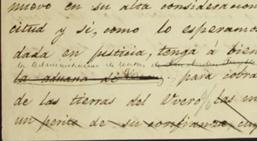 nuevo en su alta consideracion
citud y si, como lo esperamos
dada en justicia, tenga á bien
la Administracion de rentas de
la aduana de para cobrar
de las tierras del Uvero las
un perito de su confianza